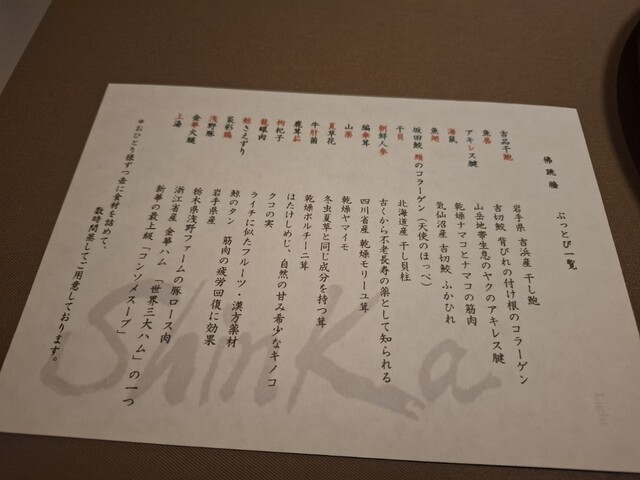 ぶっとび一覧
佛跳牆
吉品干鮑 岩手県 吉浜産 干し鮑
魚唇 吉切鮫 背びれの付け根のコラーゲン
アキレス腱 山岳地帯生息のヤクのアキレス腱
海鼠 乾燥ナマコとナマコの筋肉
魚翅 気仙沼産 吉切鮫 ふかひれ
坂田鮫 頬のコラーゲン（天使のほっぺ）
干貝 北海道産 干し貝柱
朝鮮人参 古くから不老長寿の薬として知られる
編傘茸 四川省産 乾燥モリーユ茸
山薬 乾燥ヤマイモ
夏草花 冬虫夏草と同じ成分を持つ茸
牛肝菌 乾燥ポルチーニ茸
鹿茸茹 はたけしめじ、自然の甘み希少なキノコ
枸杞子 クコの実
龍眼肉 ライチに似たフルーツ・漢方薬材
鯨さえずり 鯨のタン 筋肉の疲労回復に効果
菜彩鶏 岩手県産
浅野豚 栃木県浅野ファームの豚ロース肉
金華火腿 浙江省産 金華ハム 「世界三大ハム」の一つ
上湯 新華の最上級「コンソメスープ」
＊おひとり様ずつ壺に食材を詰めて、
数時間蒸してご用意しております。
ShinKa